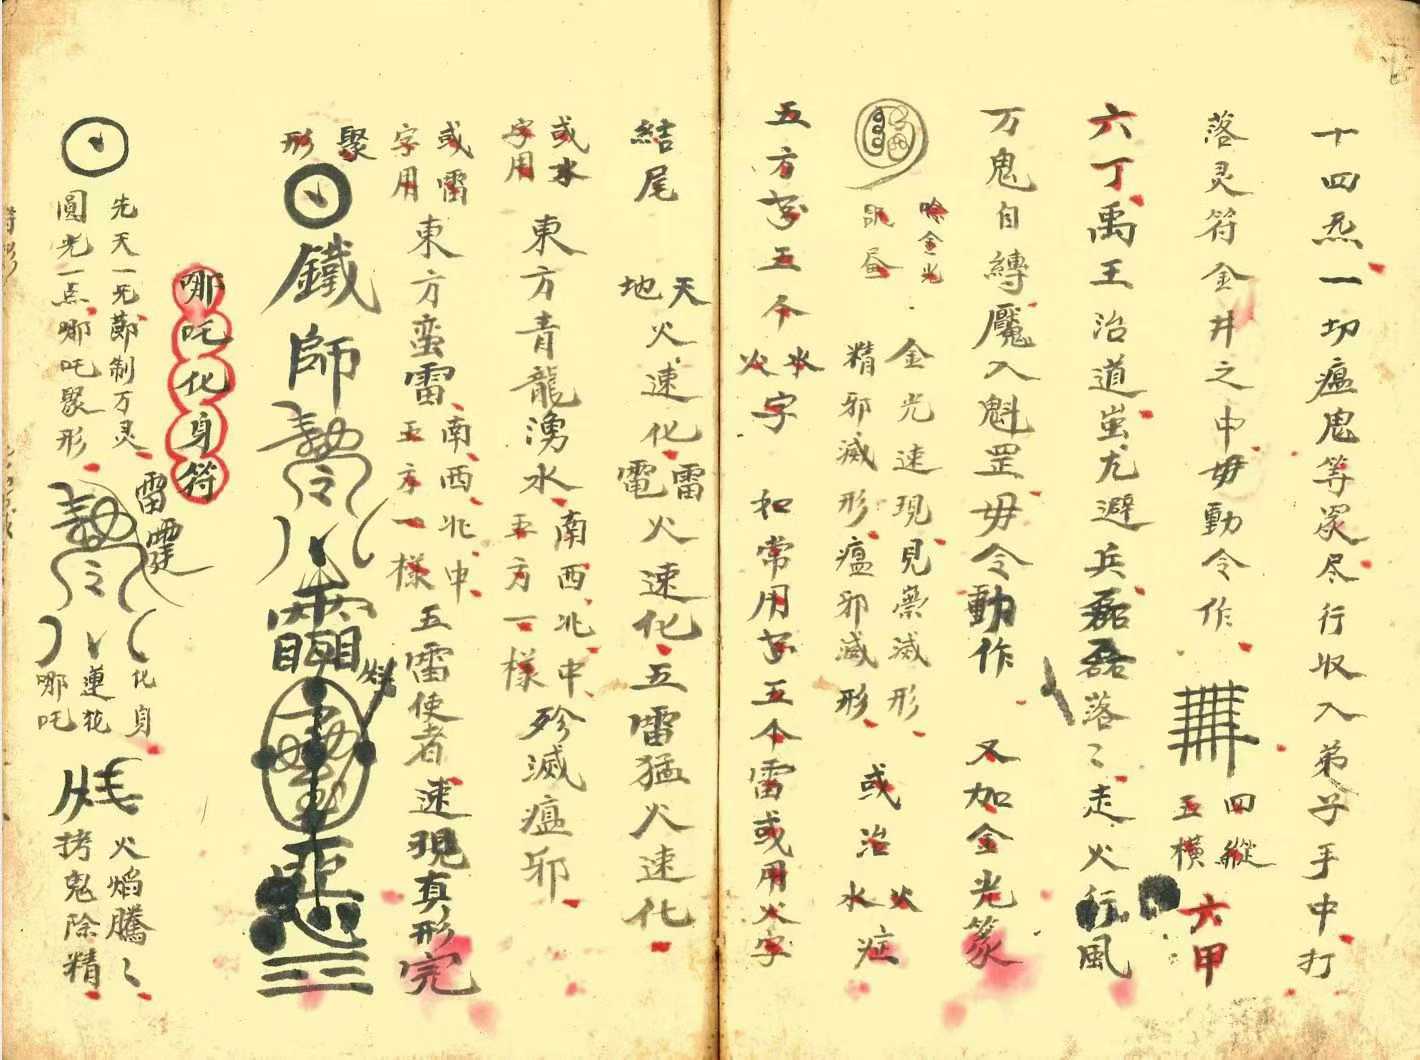 十四炁一切瘟鬼等眾尽行収入弟子手中打
落灵符金井之中毋動令作
四縱
五橫
六甲
六丁禹王治道蚩尤避兵磊磊落〻走火行風
万鬼自縛魘入魁罡毋令動作 又加金光篆
唸金光
金光速現見祟滅形
精邪滅形瘟邪滅形
或治
火
水
症
五方字五个
水
火
字 和常用字五个雷或用火字
結尾
天
地
火速化
雷
電
火速化五雷猛火速化
或水
字用
東方青龍湧水
南西北中
五方一樣
殄滅瘟邪
或雷
字用
東方蛮雷
南西北中
五方一樣
五雷使者速現真形完
聚
形
鐵師
令
哪吒化身符
先天一炁鄷制万灵
圓光一点哪吒聚形
雷
令
化身
蓮花
哪吒
火焰騰〻
拷鬼除精